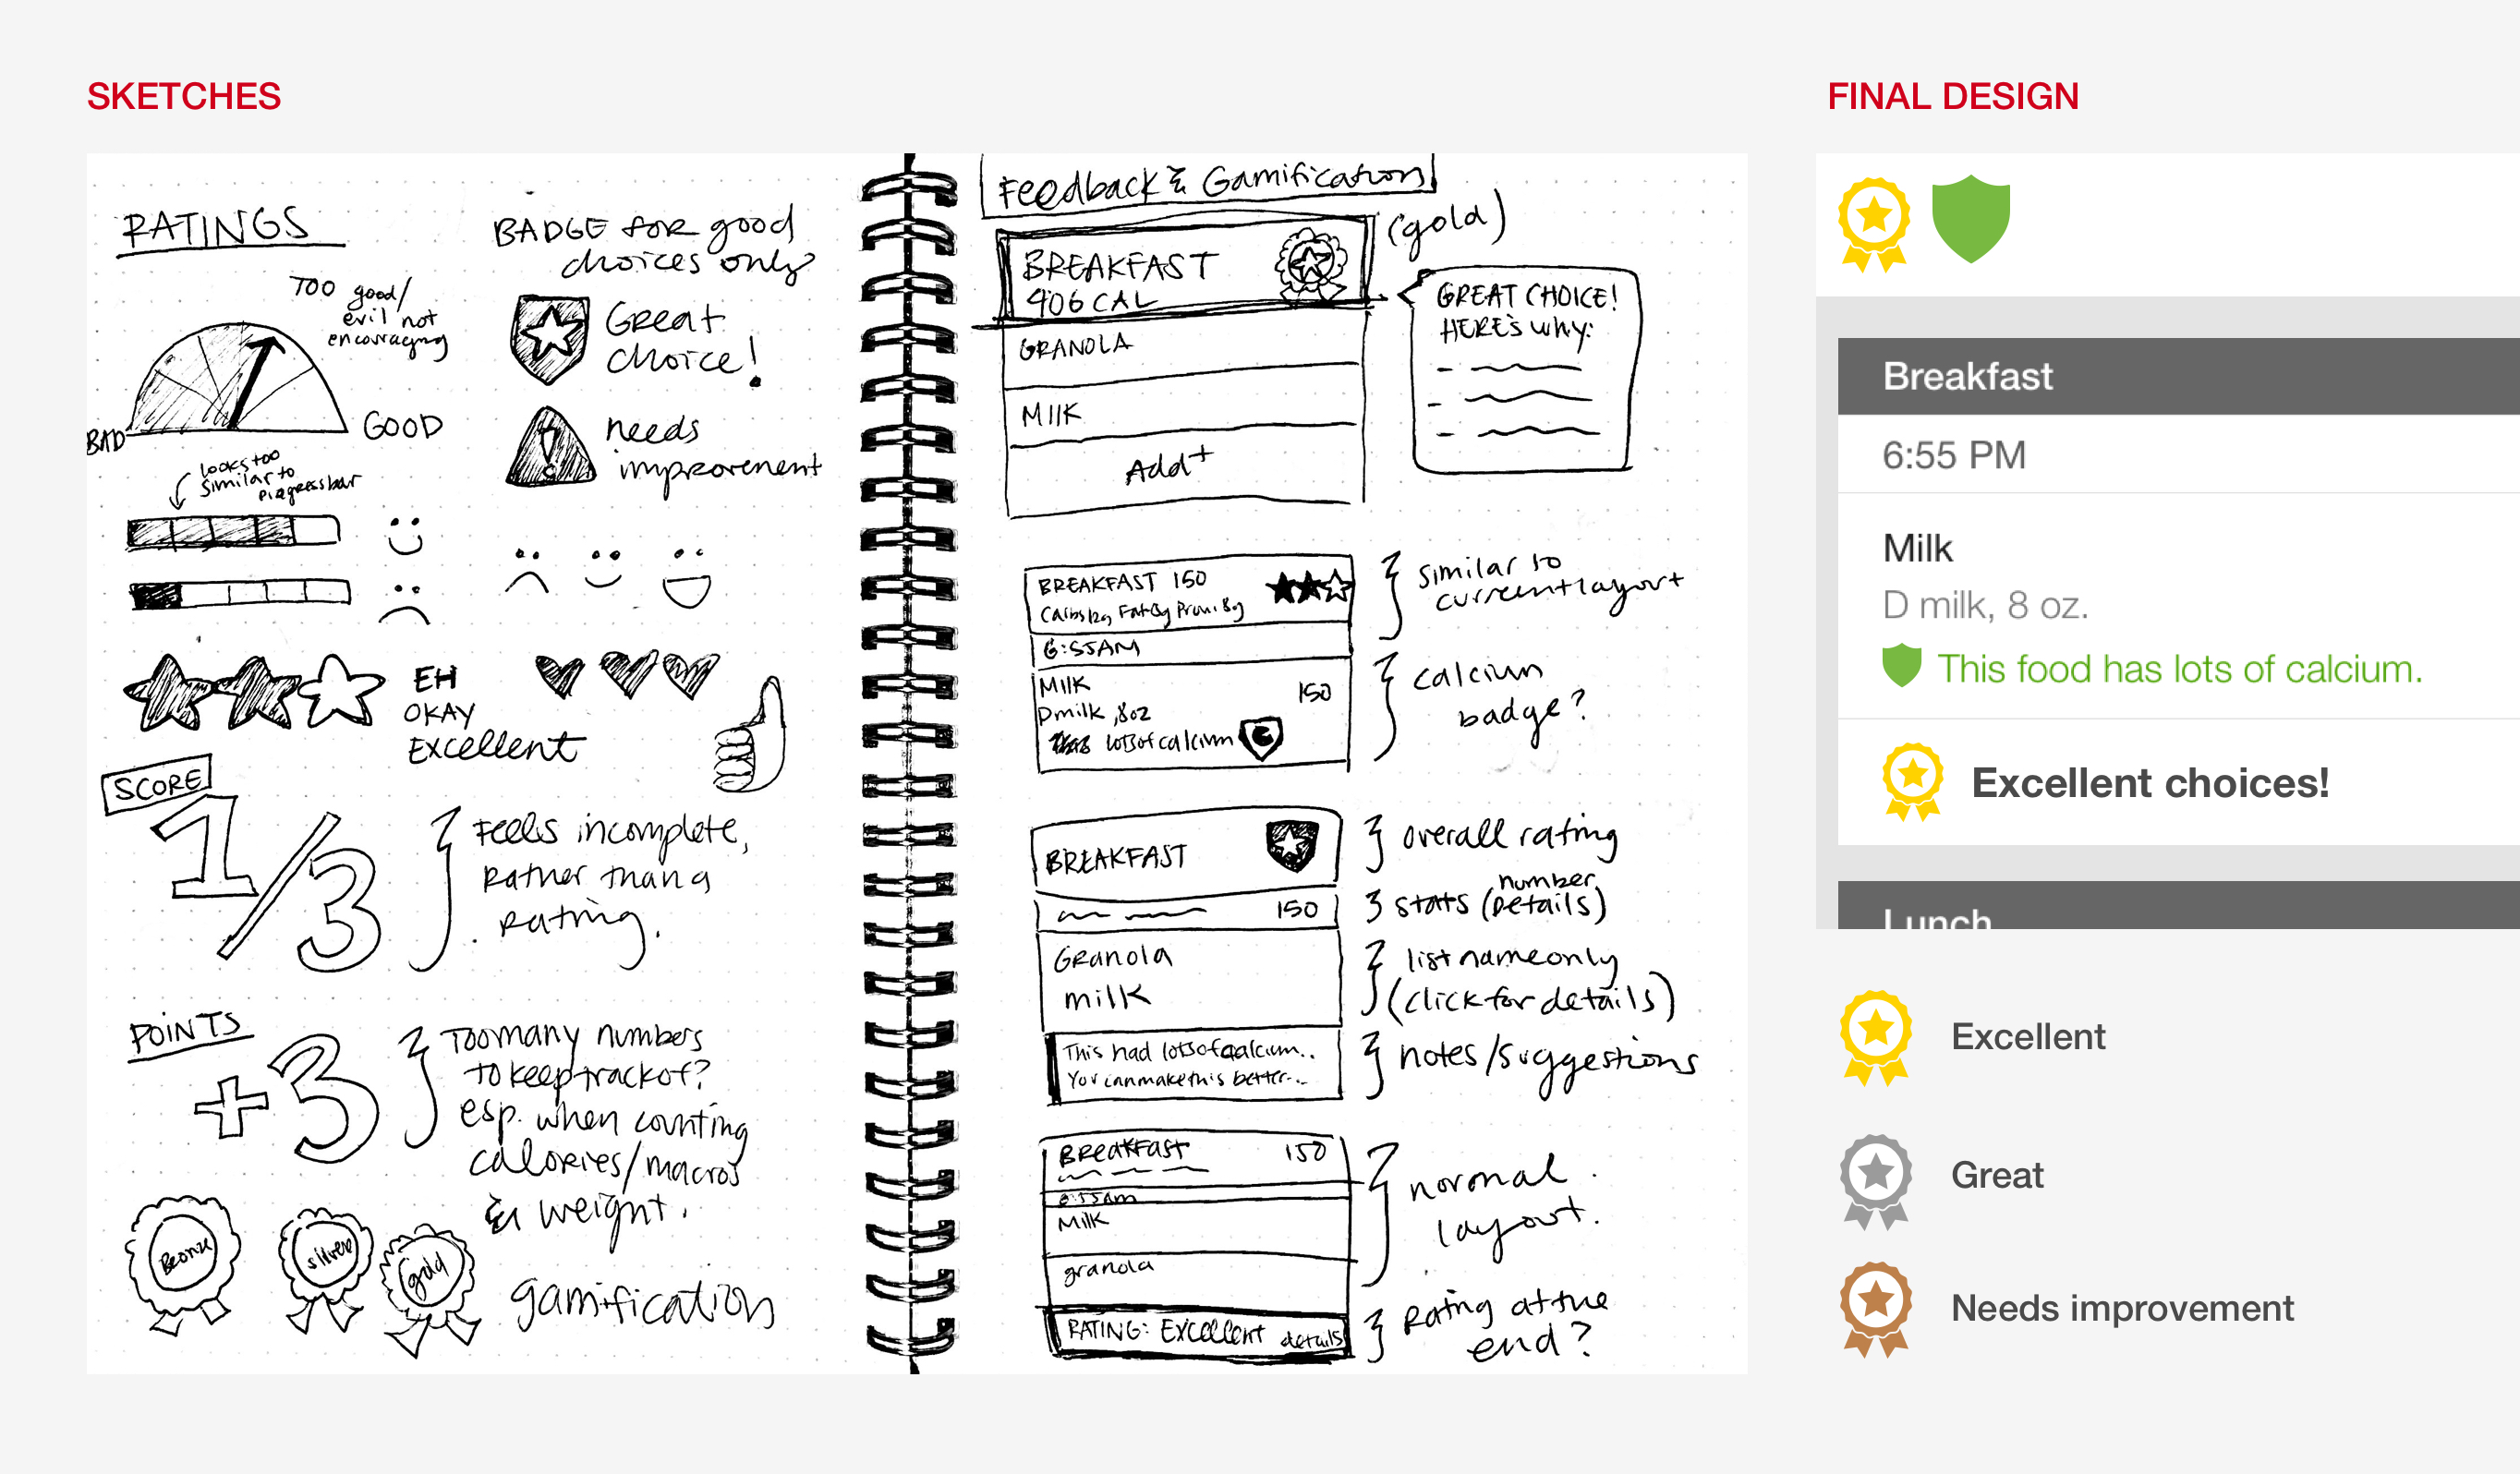 SKETCHES
RATINGS
TOO good/
evil not
encouraging
BAD
GOOD
looks too
similar to
progress bar
BADGE for good
choices only
Great
choice!
needs
improvement
EH
OKAY
Excellent
SCORE
1/3
Feels incomplete,
Rather than a
rating.
POINTS
+3
Too many numbers
to keep track of?
esp. when counting
calories/macros
& weight.
Bronze
silver
gold
gamification
Feedback & Gamification
BREAKFAST
406 CAL
(gold)
GRANOLA
MIlK
Add+
GREAT CHOICE!
HERE'S why:
BREAKFAST 150
6:55AM
MIlK
D milk, 8oz
150
lots of calcium
C
similar to
current layout
calcium
badge?
BREAKFAST
150
Granola
milk
This had lots of calcium..
You can make this better...
overall rating
stats (number
Details)
list name only
(click for details)
notes/suggestions
Breakfast 150
6:55am
Milk
granola
RATING: Excellent details
normal
layout.
Rating at the
end?
FINAL DESIGN
Breakfast
6:55 PM
Milk
D milk, 8 oz.
This food has lots of calcium.
Excellent choices!
Lunch
Excellent
Great
Needs improvement